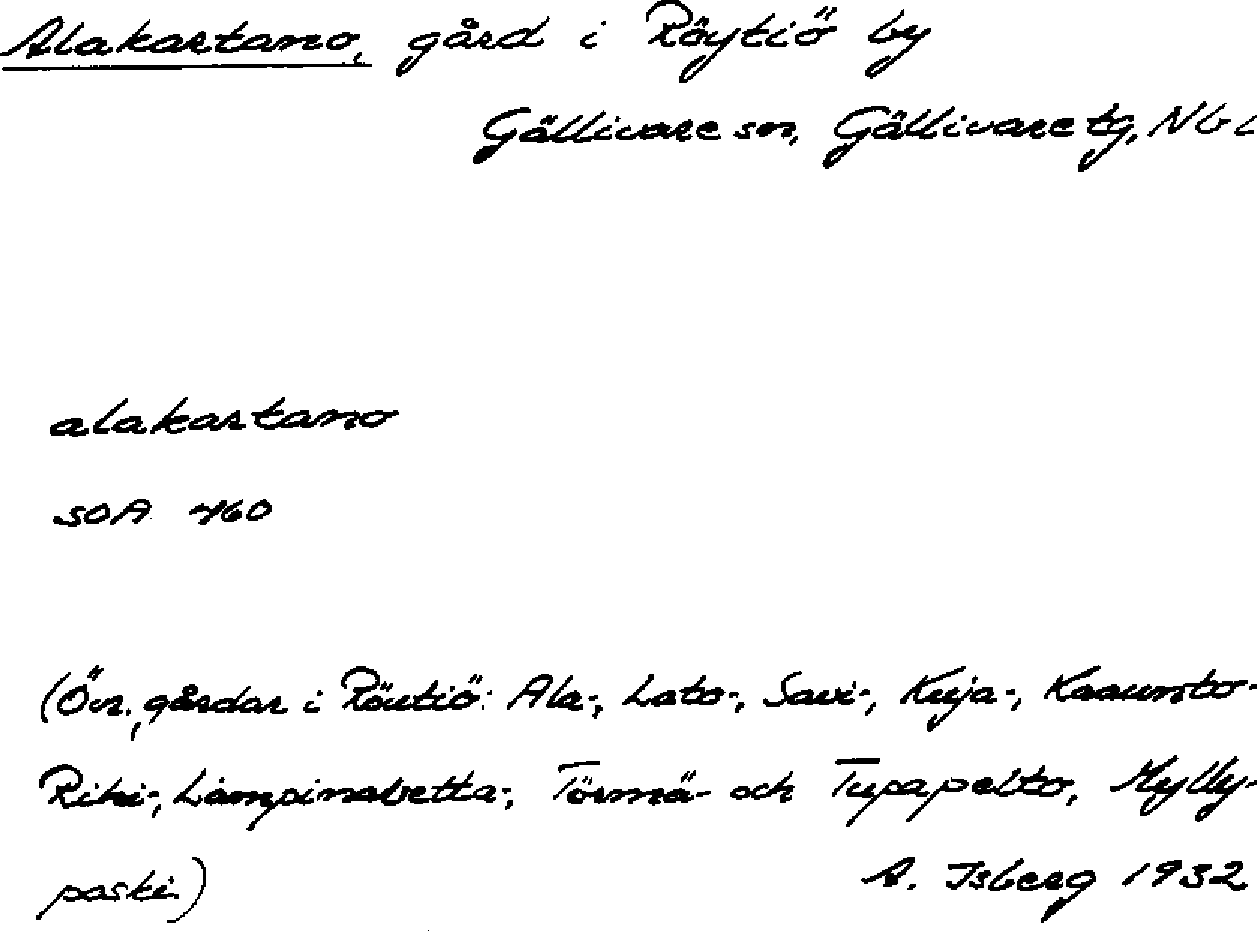 Alakartano, gård i Röytiö by
Gällivare sn, Gällivare tg, Nb l
alakartano
SOA 460
(Övr. gårdar i Röutiö: Ala-, Lato-, Savi-, Kuja-,
Riihi-, Törmä- och Tupapelto, Mylly-
paski)
A. Isberg 1932